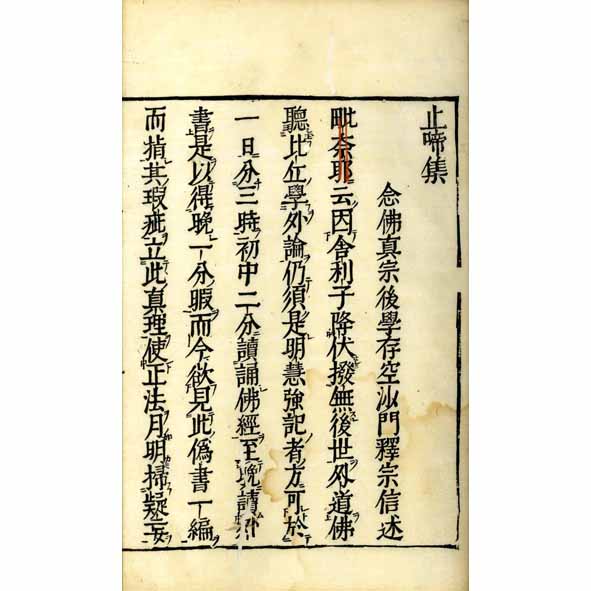 止啼集
念佛真宗後學存空沙門釋宗信述
毗奈耶云因舍利子降伏撥無後世外道佛
聽比丘學外論仍須是明慧強記者方可於
一日分三時初中二分讀誦佛經至晚讀外
書是以得晚一分暇而今欲見此偽書一編
而指其瑕疵立此真理使正法月明掃疑妄